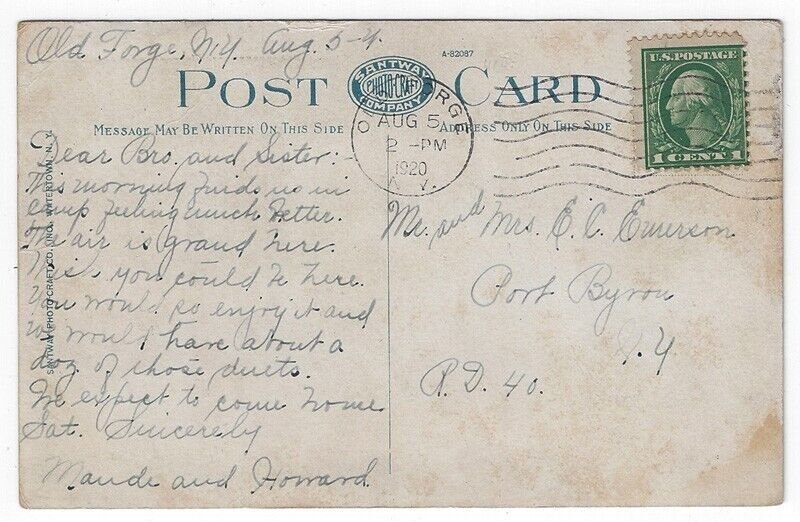 Old Forge, N.Y. Aug. 5-
A-82087
POST CARD
SANTWAY
PHOTO-CRAFT
COMPANY
MESSAGE MAY BE WRITTEN ON THIS SIDE
ADDRESS ONLY ON THIS SIDE
OLD FORGE
AUG 5
2 -PM
1920
N.Y.
U.S. POSTAGE
1 CENT 1
SANTWAY PHOTO-CRAFT CO., INC., WATERTOWN, N. Y.
Dear Bro. and Sister:-
This morning finds us in
camp feeling much better.
The air is grand here.
Wish you could be here.
You would so enjoy it and
we would have about a
doz. of those duets.
We expect to come home
Sat. Sincerely
Maude and Howard
Mr. and Mrs. E. C. Emerson
Port Byron
N.Y
R.D. 40.